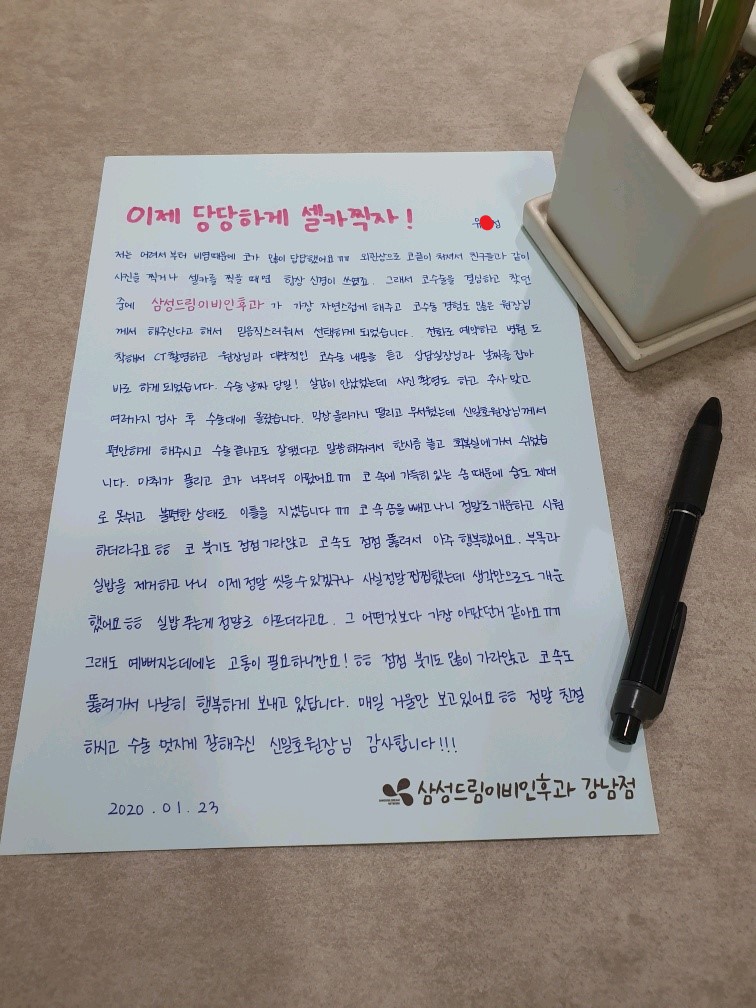 이제 당당하게 셀카찍자!
저는 어려서부터 비염때문에 코가 많이 답답했어요ㅠㅠ 외관상으로 코끝이 쳐져서 친구들과 같이
사진을 찍거나 셀카를 찍을 때면 항상 신경이 쓰였죠. 그래서 코수술을 결심하고 찾던
중에 삼성드림이비인후과가 가장 자연스럽게 해주고 코수술 경험도 많은 원장님
께서 해주신다고 해서 믿음직스러워서 선택하게 되었습니다. 전화로 예약하고 병원 도
착해서 CT촬영하고 원장님과 대략적인 코수술 내용을 듣고 상담실장님과 날짜를 잡아
바로 하게 되었습니다. 수술 날짜 당일! 실감이 안났었는데 사진 촬영도 하고 주사 맞고
여러가지 검사 후 수술대에 올랐습니다. 막상 올라가니 떨리고 무서웠는데 신일호원장님께서
편안하게 해주시고 수술 끝나고도 잘됐다고 말씀해주셔서 한시름 놓고 회복실에 가서 쉬었습
니다. 마취가 풀리고 코가 너무너무 아팠어요ㅠㅠ 코 속에 가득히 있는 솜 때문에 숨도 제대
로 못쉬고 불편한 상태로 이틀을 지냈습니다ㅠㅠ 코 속 솜을 빼고 나니 정말로 개운하고 시원
하더라구요ㅎㅎ 코 붓기도 점점 가라앉고 코 속도 점점 뚫려서 아주 행복했어요. 부목과
실밥을 제거하고 나니 이제 정말 씻을 수 있겠구나 사실 정말 찝찝했는데 생각만으로도 개운
했어요ㅎㅎ 실밥 푸는게 정말로 아프더라고요. 그 어떤것보다 가장 아팠던거 같아요ㅠㅠ
그래도 예뻐지는데에는 고통이 필요하니깐요! ㅎㅎ 점점 붓기도 많이 가라앉고 코 속도
뚫려가서 나날히 행복하게 보내고 있답니다. 매일 거울만 보고있어요ㅎㅎ 정말 친절
하시고 수술 멋지게 잘해주신 신일호원장님 감사합니다!!!
2020.01.23
삼성드림이비인후과 강남점